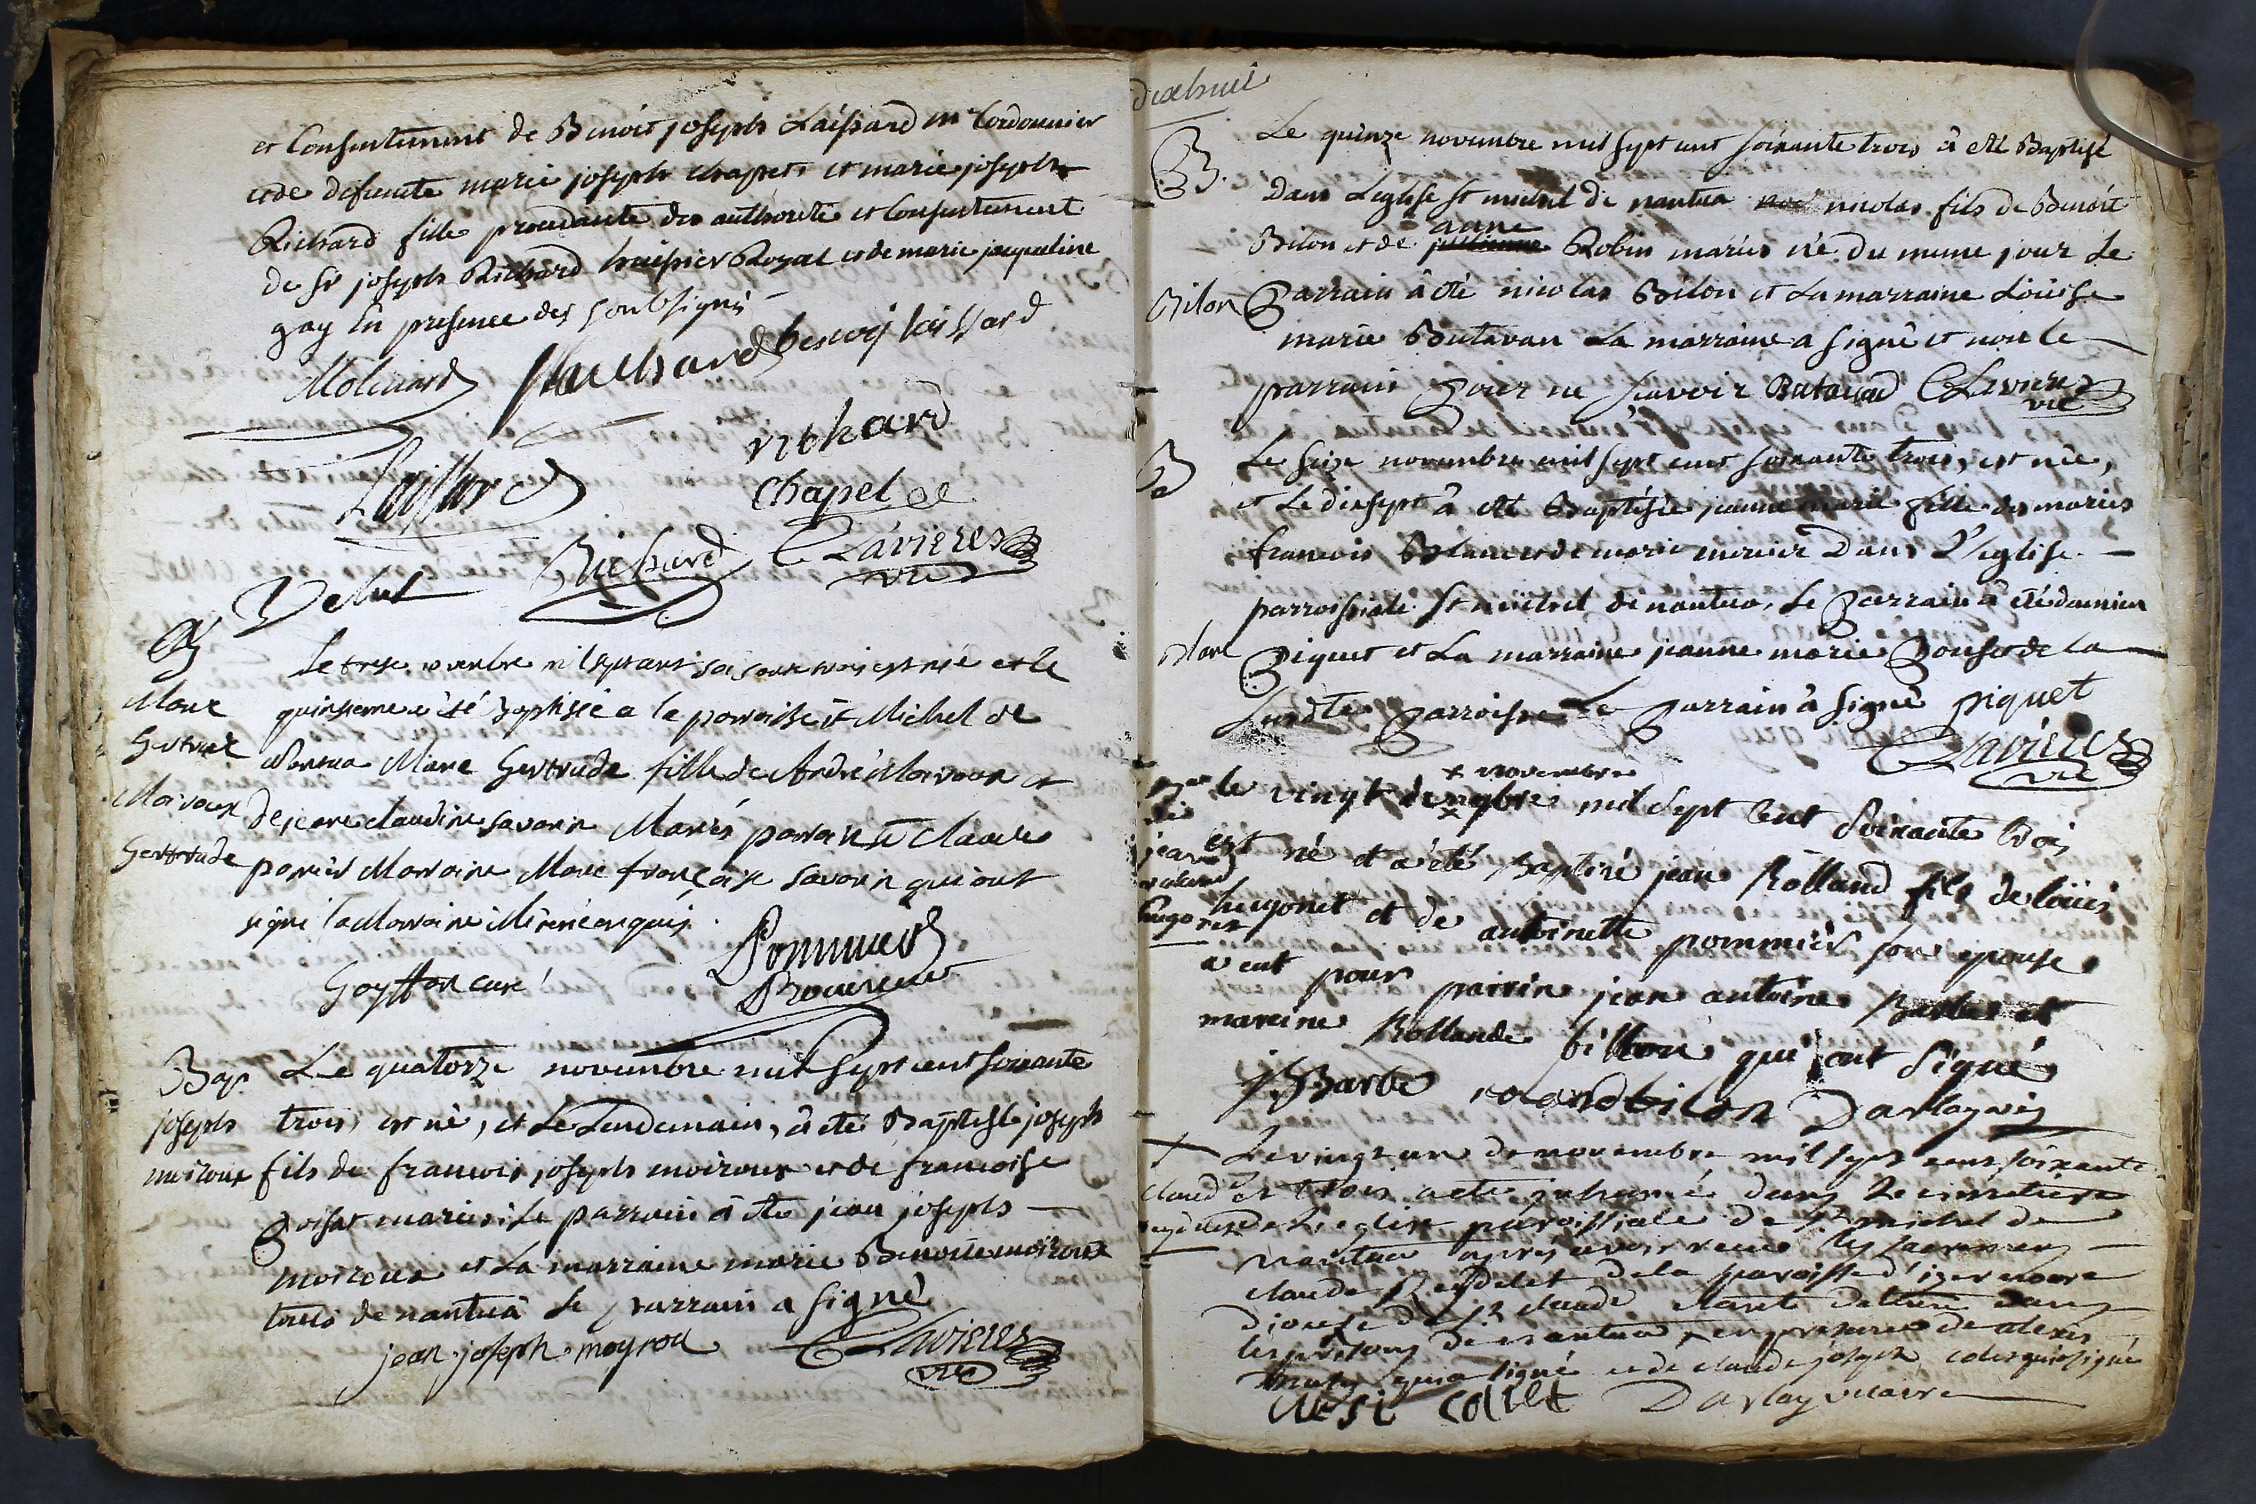 et Consentement de Benoit joseph Laissard me Cordonnier
et de defuncte marie joseph chapet, et marie joseph
Richard fille procedante des authorité et Consentement
de Sr joseph Richard huissier Royal et de marie jacqueline
gay En presence des soubsignés
Molinard benoit laissard
richard
Laissard
chapel
Richard Clavieres
vre
B
Le treze novembre mil sept cent soisante trois est née et le
Marie quinsieme a été Baptisée a la paroisse St Michel de
Gertrude Nantua Marie Gertrude fille de André Moiroux et
Moiroux de jeane claudine savarin Mariés parain Sr Claude
Gertrude Maraine Marie françoise savarin qui ont
signé la Maraine
Goyffon curé
Pommier
Bap. Le quatorze novembre mil sept cent soixante
joseph trois, est né, et Le Lendemain, â eté Baptisé joseph
moiroux fils de francois joseph moiroux et de francoise
Poisat mariés. Le parrain â ete jean joseph
moiroux et La marraine marie Benoite moiroux
touts de nantuâ Le parrain a signé
jean joseph moyrou Clavieres
vre
dixhuit
B. Le quinze novembre mil sept cent soixante trois â eté Baptisé
Dans L'eglise St michel de nantua nicolas fils de Benoit
anne
Bilon et de Robin mariés né du meme jour Le
Bilon Parrain â eté nicolas Bilon et La marraine Loüise
marie Butavan La marraine a signé et non le
parrain pour ne sçavoir Butavand Clavieres
vre
B Le seize novembre mil sept cent soixante trois, est née,
et Le dixsept â eté Baptisée jeanne marie fille des mariés
francois Blanc et de marie mercier Dans L'eglise
parroissiale St michel de nantua, Le Parrain â eté damien
Blanc Piquet et La marraine jeanne marie Ponset de la
susdte Parroisse Le Parrain â signé piquet
Clavieres
vre
+ novembre
le vingt de mil Sept Cent Soixante trois
jean est né et a été Baptisé jean Rolland fils de loüis
rolland
hugonet hugonet et de antoinette pommier son epouse
a eut pour parrin jean antoine Barbe et
mareine Rollande billon qui ont signé
J Barbe roland bilon Darlay vic
+ Le vingt un de novembre mil sept cent soixante
claude et trois a eté inhumé dans le cimetiere
reydelet de L'eglise paroissiale de St michel de
nantua apres avoir receu les sacremens
claude Reydelet de la paroisse d'izernore
diocese de St claude etant detenu dans
les prisons de nantua, en presence de alexis
qui a signé et de claude joseph colet qui a signé
colet Darlay vicaire